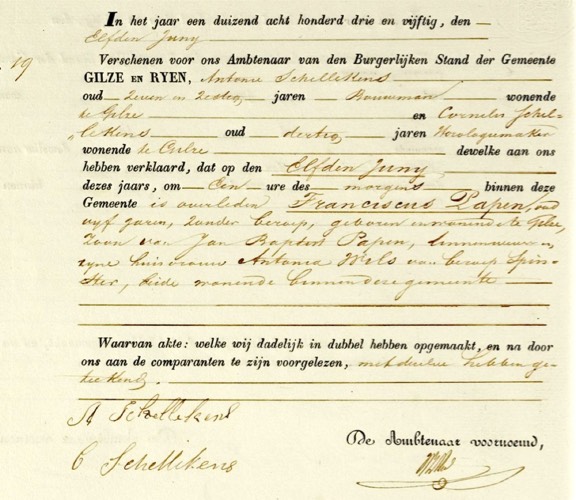 In het jaar een duizend acht honderd drie en vijftig, den
Elfden Juny
19 Verschenen voor ons Ambtenaar van den Burgerlijken Stand der Gemeente
GILZE EN RYEN, Antonie Schellekens
oud Zeven en Zestig jaren Bouwman wonende
te Gilze en Cornelis Schel-
lekens oud dertig jaren Horlogiemaker
wonende te Gilze dewelke aan ons
hebben verklaard, dat op den Elfden Juny
dezes jaars, om Een ure des morgens binnen deze
Gemeente is overleden Franciscus Papen, oud
vyf jaren, zonder beroep, geboren en wonende te Gilze,
Zoon van Jan Baptist Papen, linnenwever en
zyne huisvrouw Antonia Wils van beroep Spin-
ster, beide wonende binnen deze gemeente
Waarvan akte: welke wij dadelijk in dubbel hebben opgemaakt, en na door
ons aan de comparanten te zijn voorgelezen, met dezelve hebben ge-
teekend.
A Schellekens
De Ambtenaar voornoemd,
C Schellikens